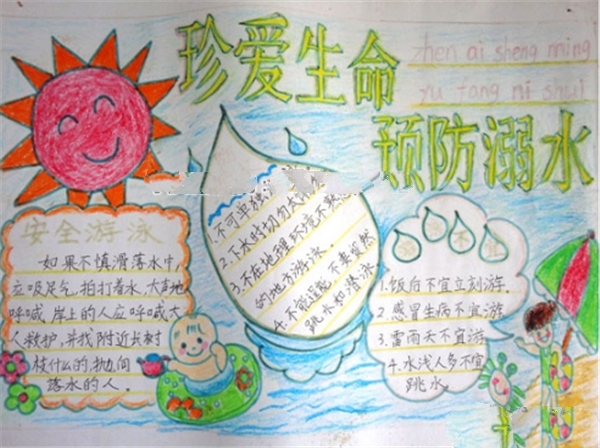 珍爱生命
zhen ai sheng ming
yu fang ni shui
预防溺水
安全游泳
如果不慎滑落水中,
应吸足气,拍打着水,大声地
呼喊,岸上的人应呼喊大
人救护,并找附近长树
枝什么的,抛向
落水的人。
1.不可单独
2.下水时切勿太
3.不在地理环境不熟
的地方游泳。
4.不贸然
跳水和潜泳
1.饭后不宜立刻游。
2.感冒生病不宜游。
3.雷雨天不宜游
4.水浅人多不宜
跳水。